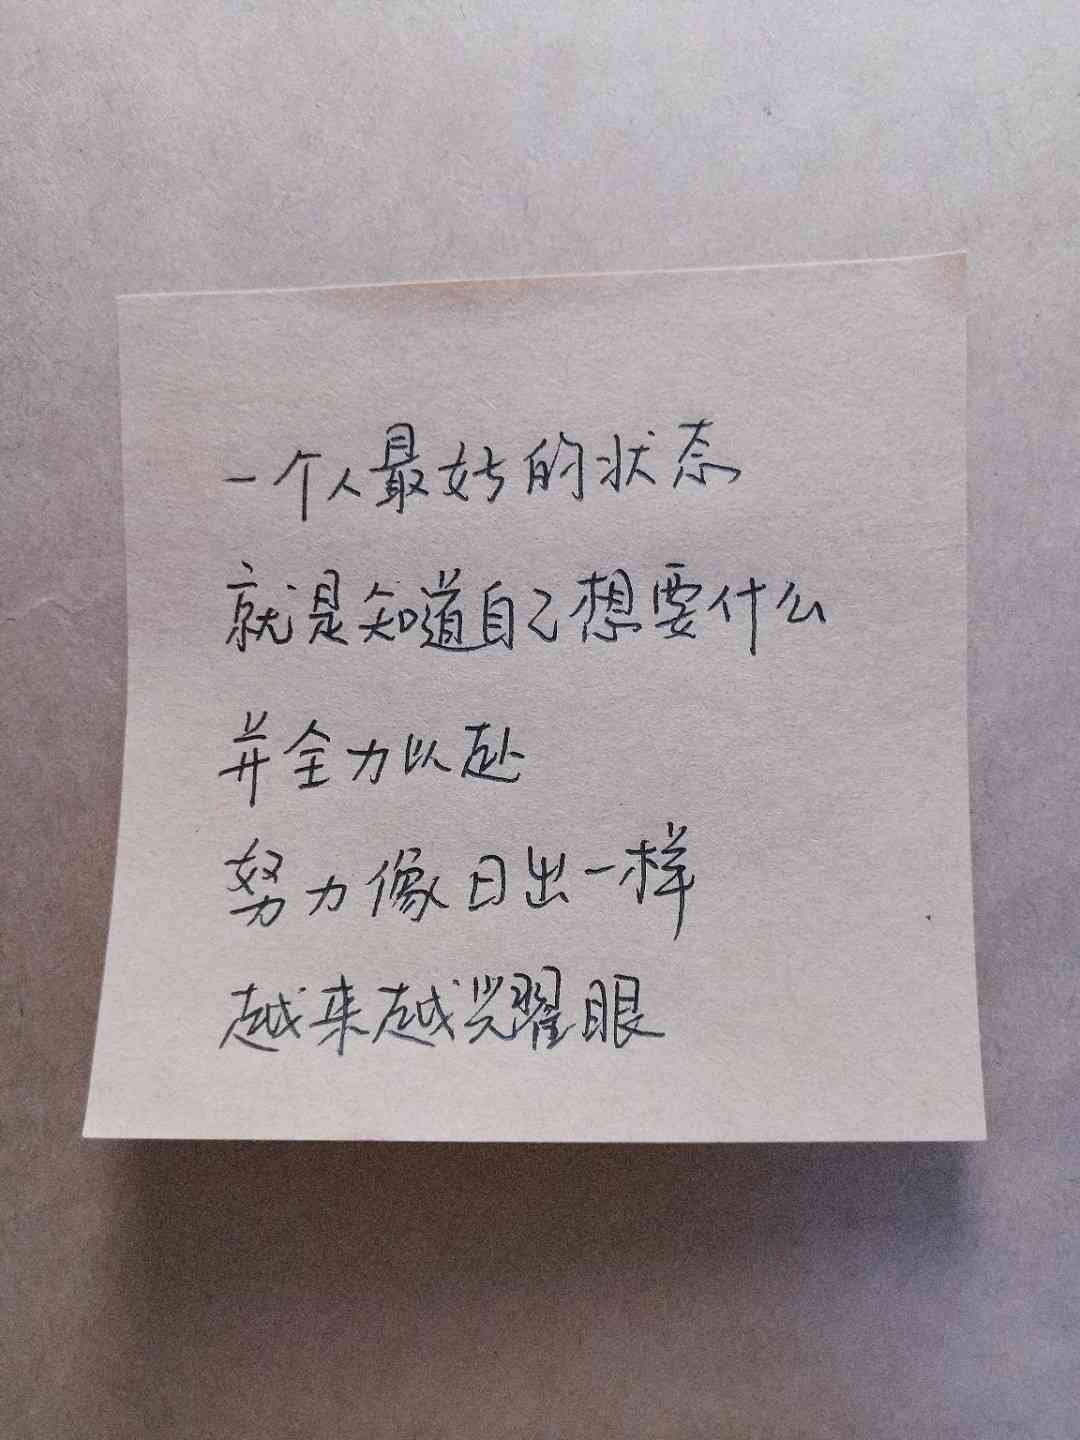 一个人最好的状态
就是知道自己想要什么
并全力以赴
努力像日出一样
越来越耀眼